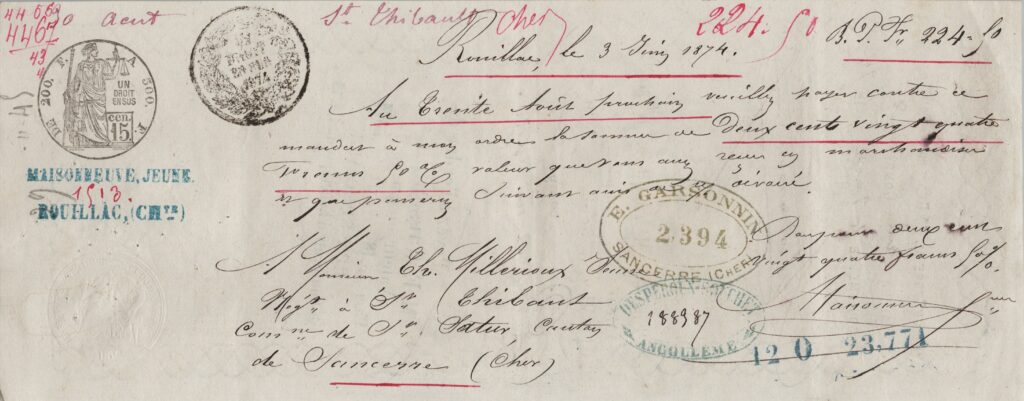 4467
30 Aout
St Thibault Cher
224.50
B.P.Fr 224-50
Rouillac, le 3 Juin 1874.
DE 200. F. A 300. F
UN
DROIT
EN SUS
CEN.
15
Au Trente Août prochain veuillez payer contre ce
mandat à mon ordre la somme de Deux cents vingt quatre
francs 50 c valeur que vous avez reçue en marchandises
et que passerez suivant avis de
MAISONNEUVE, JEUNE.
1513.
ROUILLAC, (CHTE)
E. GARSONNIN.
2.394
SANCERRE (CHER)
Bon pour deux cent
vingt quatre francs 50/.
A Monsieur Th. Millerioux Jeune
Negt à St Thibaut
Comne de St Satur, Canton
de Sancerre (Cher)
188987
ANGOULEME
Maisonneuve Jeune
12 0 23.771